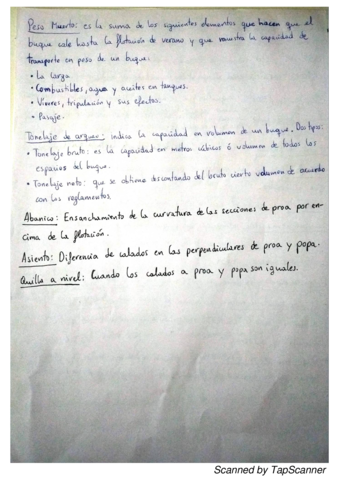 Peso Muerto: es la suma de los siguientes elementos que hacen que el
buque cale hasta la flotación de verano y que muestra la capacidad de
transporte en peso de un buque:
• La carga.
• Combustibles, agua y aceites en tanques.
• Víveres, tripulación y sus efectos.
• Pasaje.
Tonelaje de arqueo: indica la capacidad en volumen de un buque. Dos tipos:
• Tonelaje bruto: es la capacidad en metros cúbicos ó volumen de todos los
espacios del buque.
• Tonelaje neto: que se obtiene descontando del bruto cierto volumen de acuerdo
con los reglamentos.
Abanico: Ensanchamiento de la curvatura de las secciones de proa por en-
cima de la flotación.
Asiento: Diferencia de calados en las perpendiculares de proa y popa.
Quilla a nivel: Cuando los calados a proa y popa son iguales.
Scanned by TapScanner